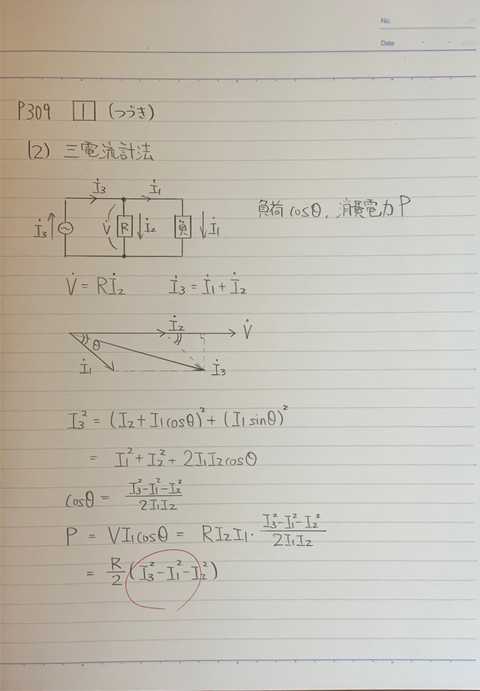 No.
Date
P309 1 (つづき)
(2) 三電流計法
İ3 İ1
İ3 V̇ R İ2 負 İ1
負荷 cosθ, 消費電力 P
V̇ = Rİ2 İ3 = İ1 + İ2
İ2 V̇
θ
İ1 İ3
I3² = (I2 + I1cosθ)² + (I1 sinθ)²
= I1² + I2² + 2I1I2cosθ
cosθ = (I3²-I1²-I2²)/(2I1I2)
P = VI1cosθ = RI2I1・(I3²-I1²-I2²)/(2I1I2)
= R/2 (I3²-I1²-I2²)